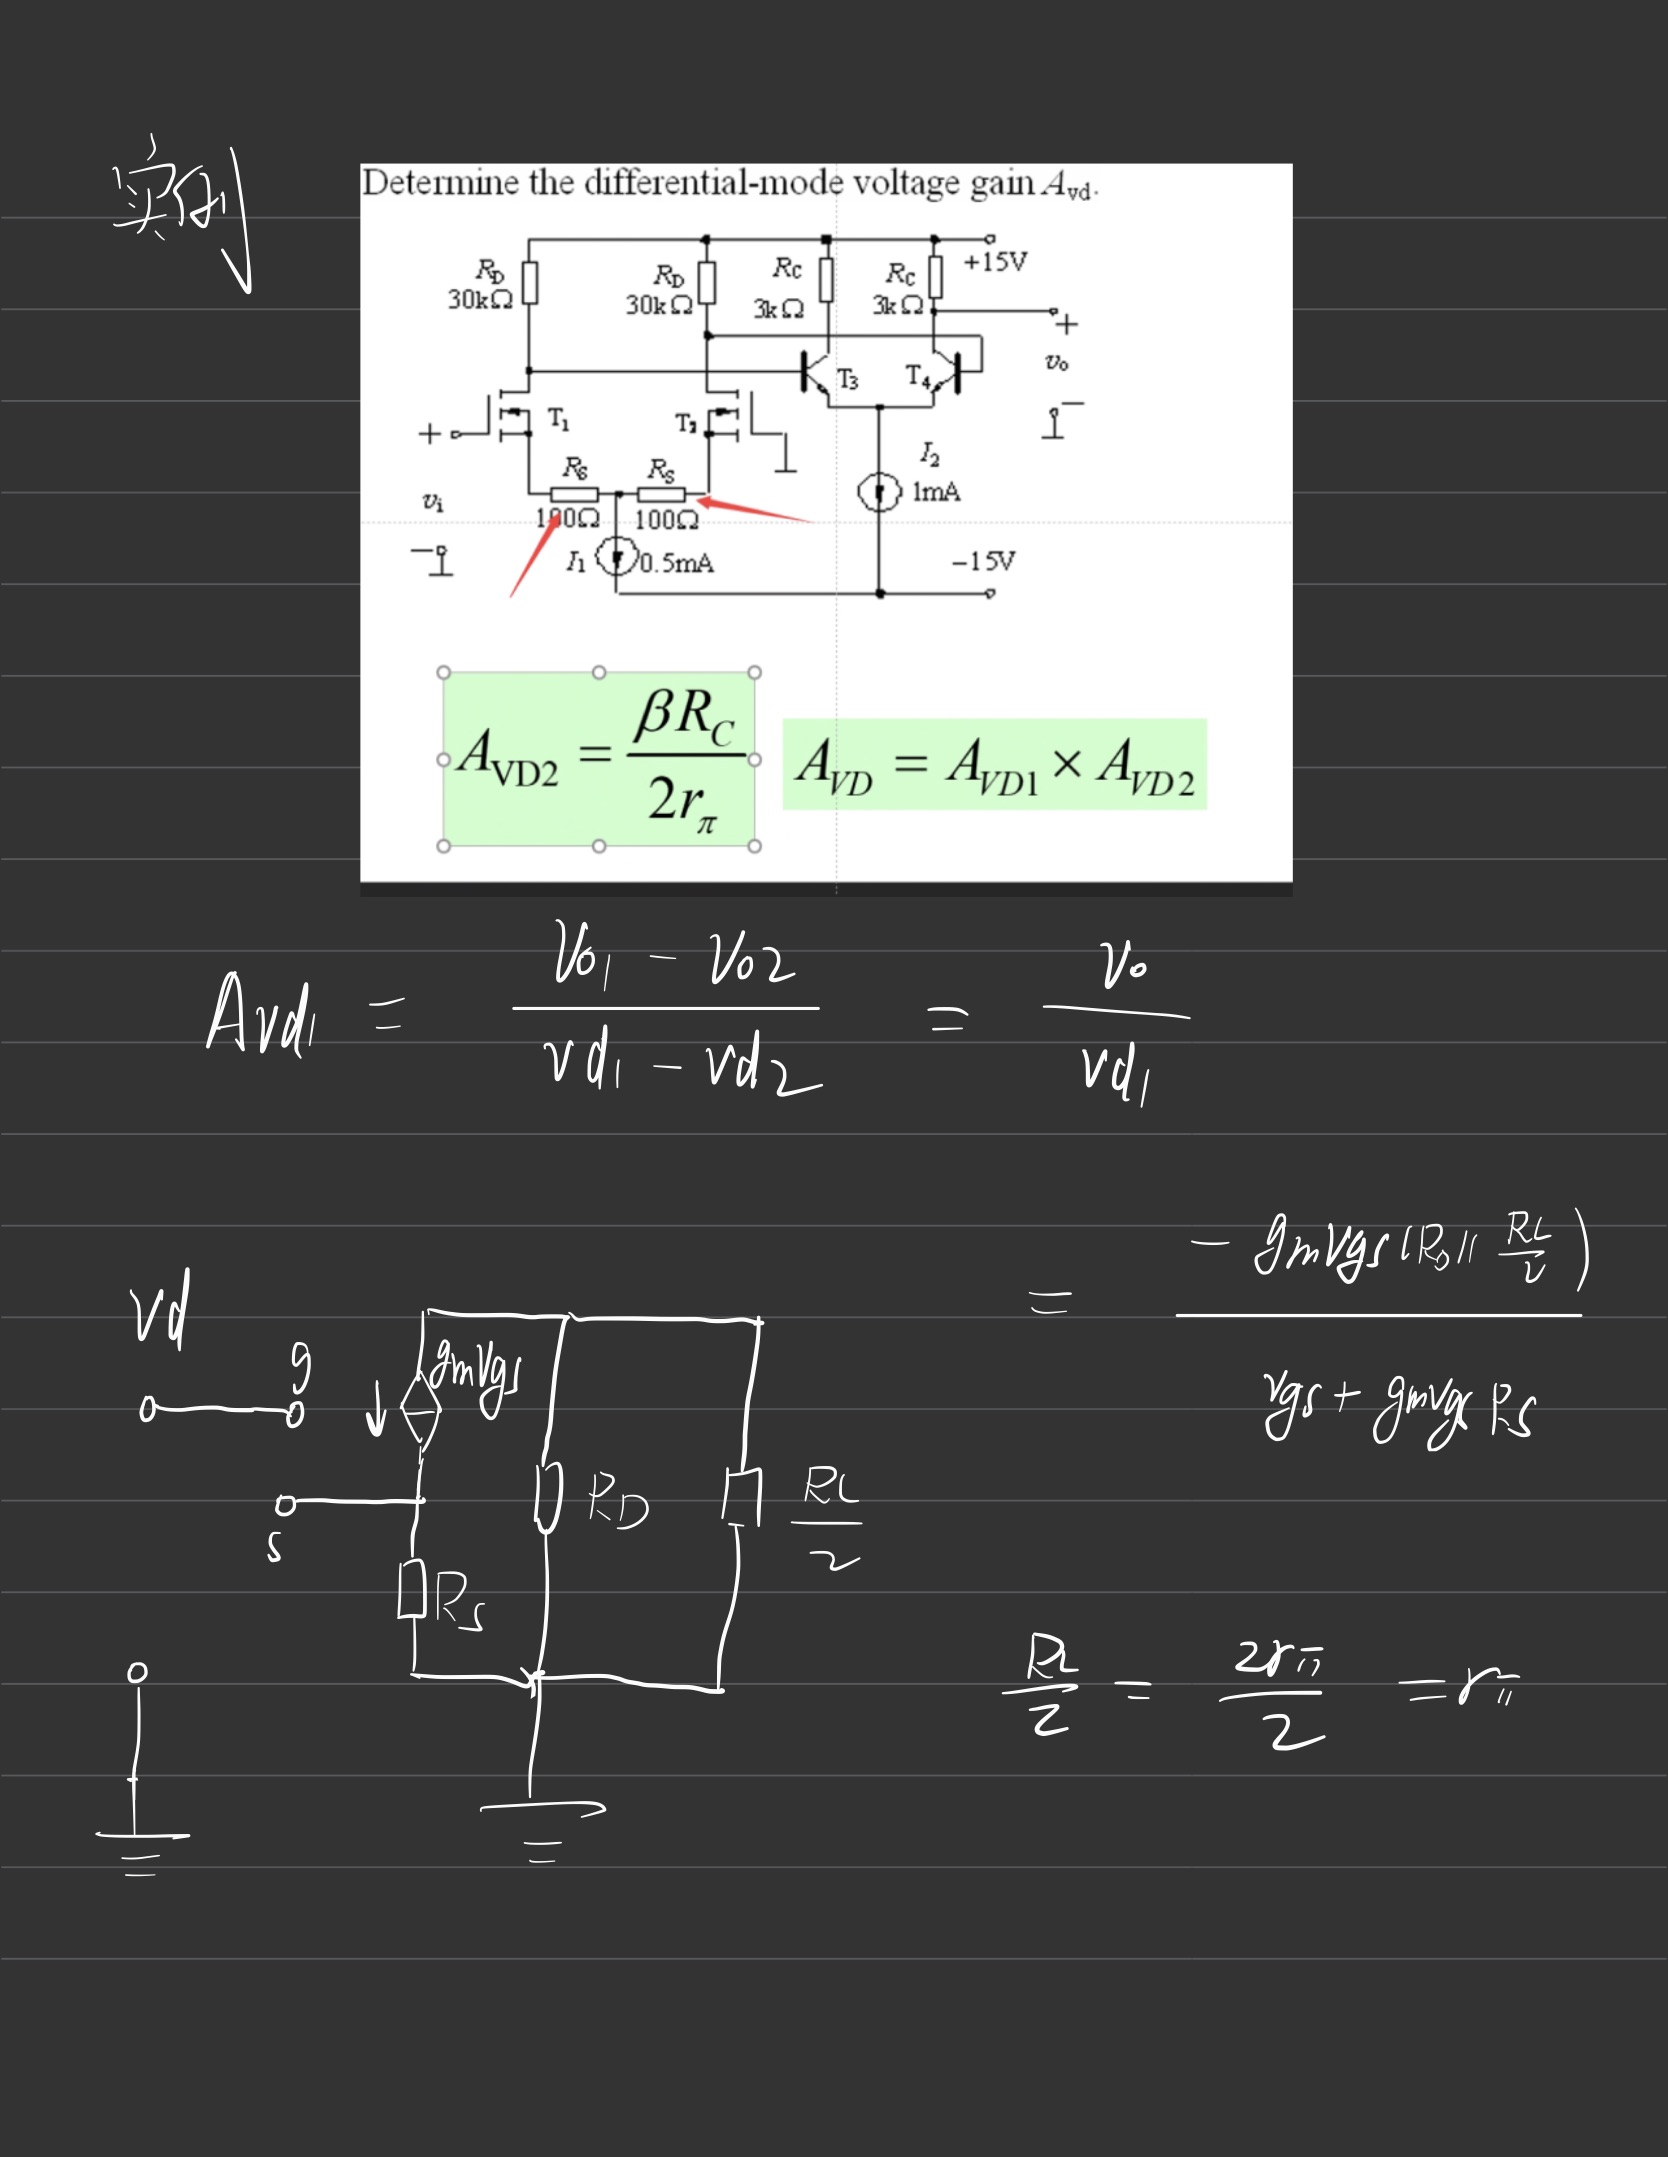 实例
Determine the differential-mode voltage gain Avd.
RD 30kΩ
RD 30kΩ
RC 3kΩ
RC 3kΩ
+15V
+
vo
−
T1
T2
T3
T4
+
vi
−
RS 100Ω
RS 100Ω
I1 0.5mA
I2 1mA
−15V
AVD2 = βRC / 2rπ
AVD = AVD1 × AVD2
Avd1 = (Vo1 − Vo2) / (vd1 − vd2) = vo / vd1
= − gmVgs (RD // RL/2) / (vgs + gmvgs RS)
Vd
g
gmVgs
s
RS
RD
RL/2
RL/2 = 2rπ/2 = rπ